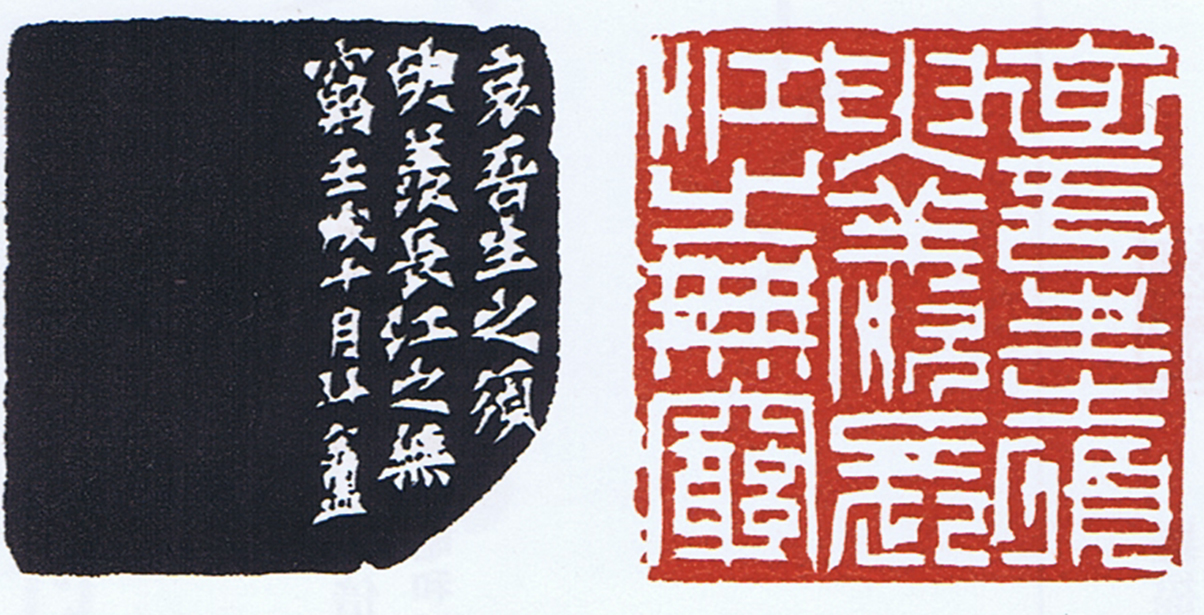 哀吾生之須
臾羨長江之無
窮壬戌十月盦
哀吾生之須
臾羨長
江之無窮